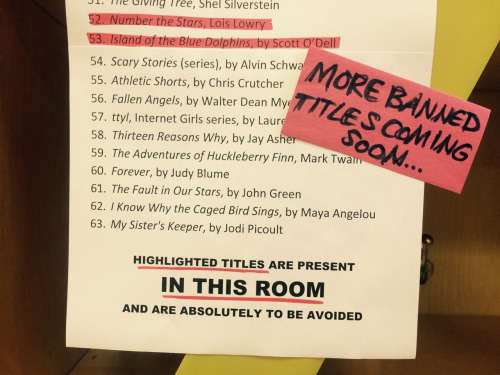 51. The Giving Tree, Shel Silverstein
52. Number the Stars, Lois Lowry
53. Island of the Blue Dolphins, by Scott O'Dell
54. Scary Stories (series), by Alvin
55. Athletic Shorts, by Chris Crutcher
56. Fallen Angels, by Walter Dean
57. ttyl, Internet Girls series, by
58. Thirteen Reasons Why, by Jay Asher
59. The Adventures of Huckleberry Finn, Mark Twain
60. Forever, by Judy Blume
61. The Fault in Our Stars, by John Green
62. I Know Why the Caged Bird Sings, by Maya Angelou
63. My Sister's Keeper, by Jodi Picoult
MORE BANNED
TITLES COMING
SOON...
HIGHLIGHTED TITLES ARE PRESENT
IN THIS ROOM
AND ARE ABSOLUTELY TO BE AVOIDED